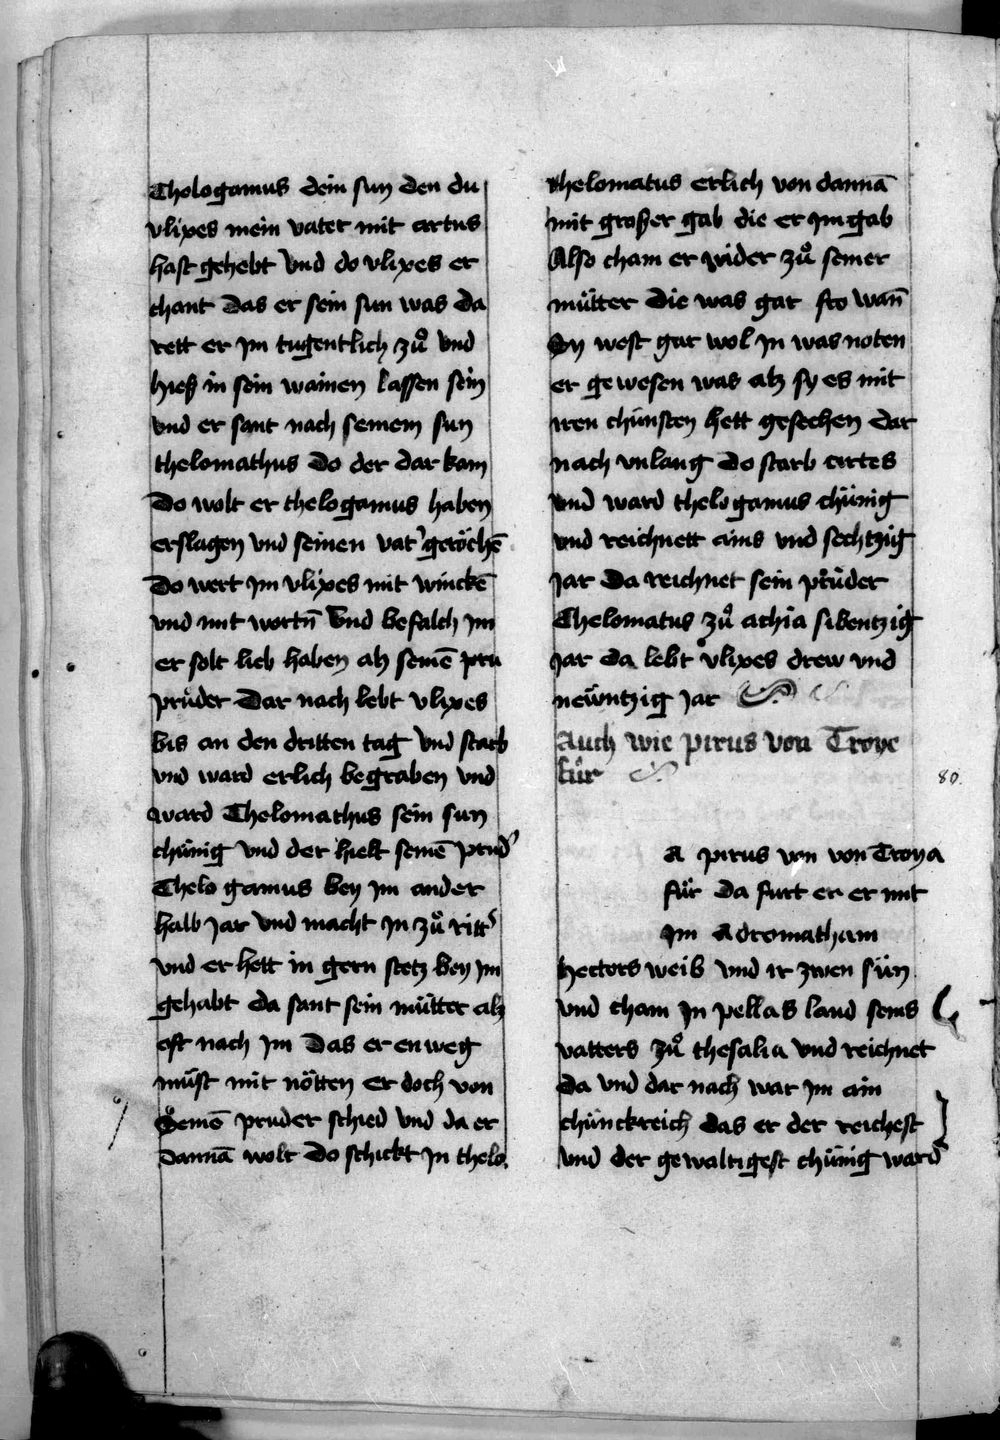 Thelogamus dein sun den du
vlixes mein vater mit artus
hast gehebt vnd do vlixes er
chant das er sein sun was da
rett er im tugentlich zuͦ vnd
hieß in sein wainen lassen sein
vnd er sant nach seinem sun
thelomathus do der dar kam
do wolt er thelogamus haben
erslagen vnd seinen vat' geröchē
do wert im vlixes mit winckē
vnd mit wortn̄ vnd befalch im
er solt lieb haben alz seinē pru
pruͦder dar nach lebt vlixes
bis an den dritten tag vnd starb
vnd ward erlich begraben vnd
ward Thelomathus sein sun
chünig vnd der hielt seinē prud'
Thelo gamus bey im ander
halb jar vnd macht in zuͦ ritt'
vnd er hett in gern stetz bey im
gehabt da sant sein müttter alz
oft nach im das er en weg
müst mit nötten er doch von
seinē pruder schied vnd da er
dannā wolt do schickt in thelo
thelomatus erlich von dannā
mit großer gab die er im gab
Also cham er wider zuͦ seiner
müͤtter die was gar fro wan̄
Sy west gar wol in was noten
er gewesen was alz sy es mit
iren chünsten hett gesechen dar
nach vnlang do starb cirtes
vnd ward thelogamus chünig
vnd reichnett ains vnd sechtzig
jar da reichnet sein prüder
Thelomatus zuͦ achia sibentzig
jar da lebt vlixes drew vnd
newntzig jar
Auch wie pirus von Troye
für
80.
A pirus von von Troya
für da furt er er mit
im Adromatham
hectors weib vnd ir zwen sün
vnd cham in pellas land seins
vatters zuͦ thesalia vnd reichnet
da vnd dar nach war im ain
chünckreich das er der reichest
vnd der gewaltigest chünig ward